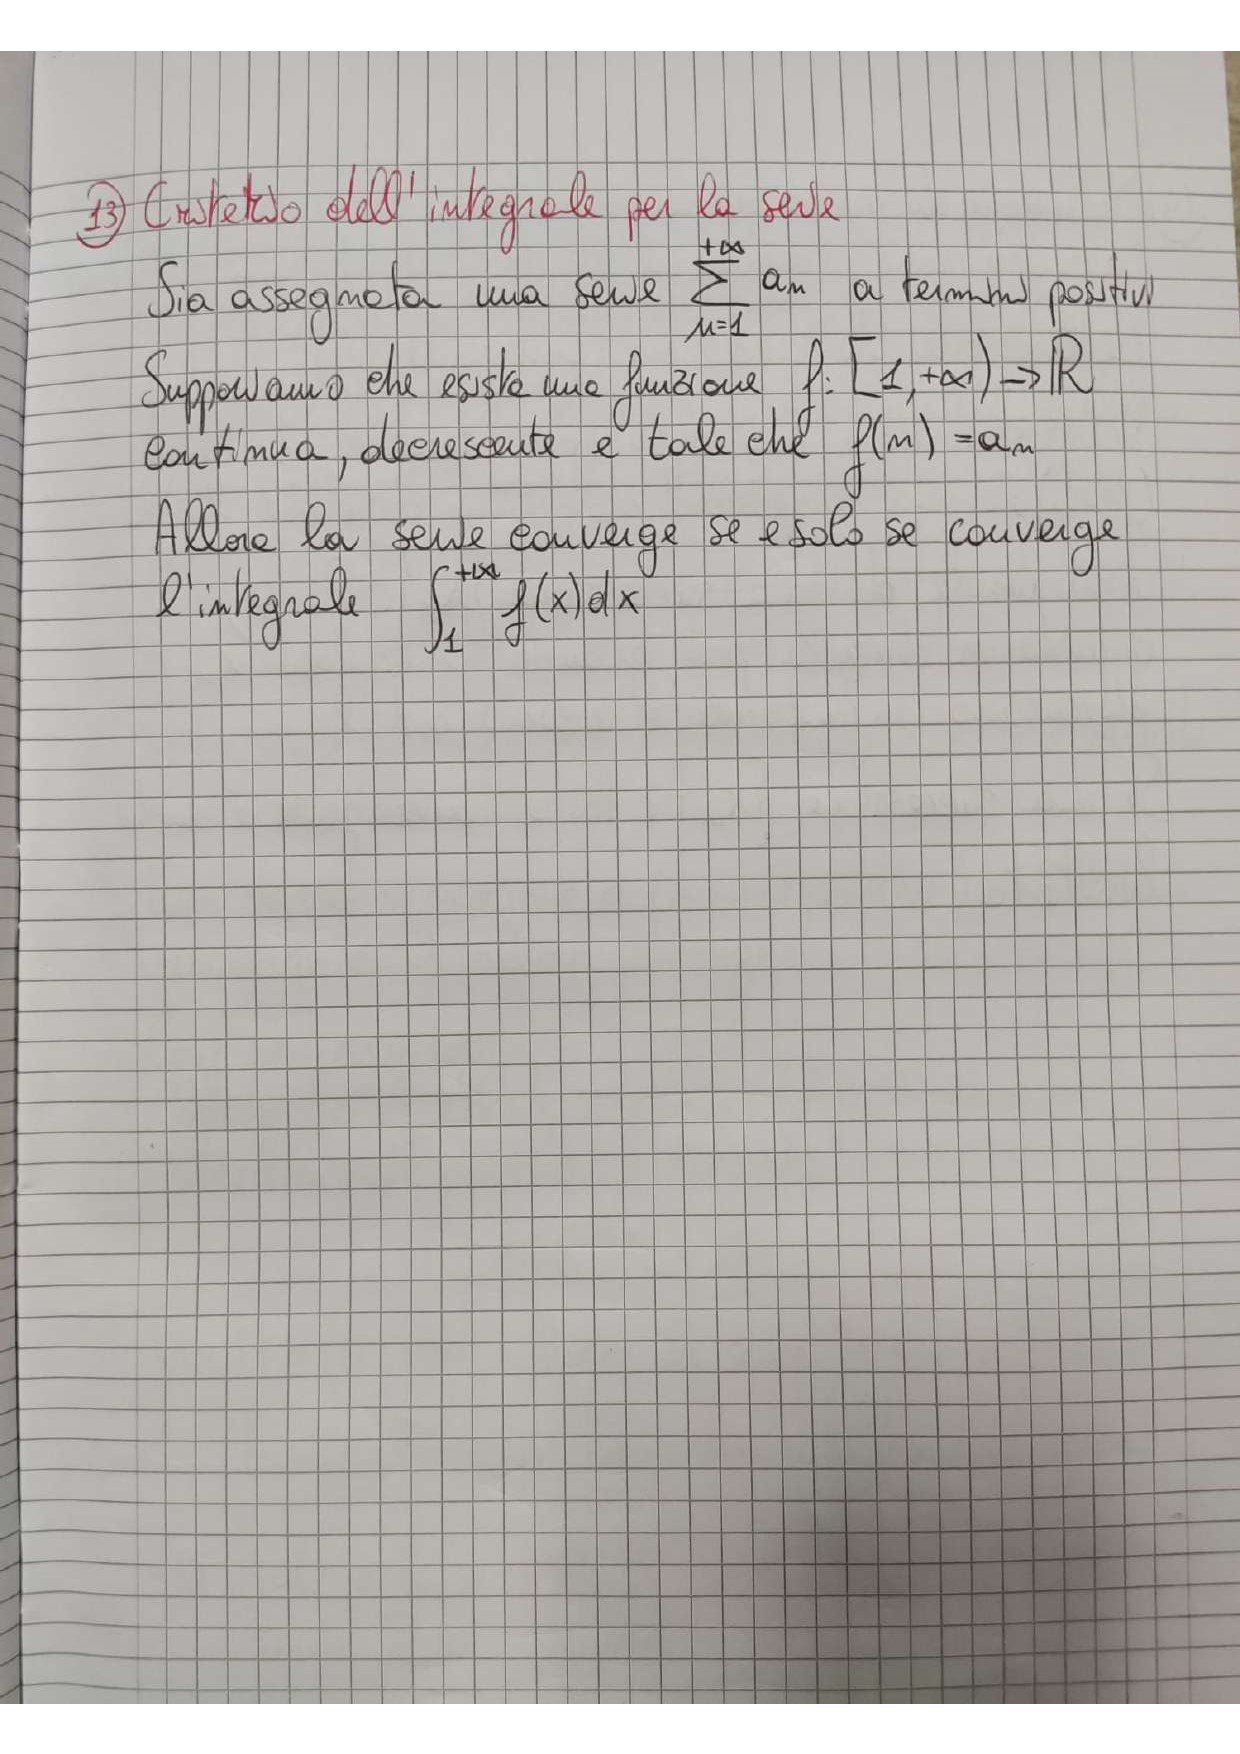 13) Criterio dell'integrale per la serie
Sia assegnata una serie +∞ ∑ n=1 an a termini positivi
Supponiamo che esiste una funzione f: [1,+∞) → ℝ
continua, decrescente e tale che f(n) = an
Allora la serie converge se e solo se converge
l'integrale ∫1+∞ f(x)dx